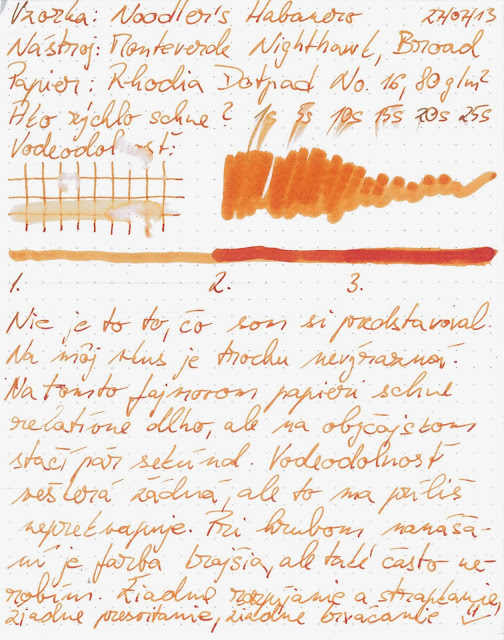 Vzorka: Noodler's Habanero 27/07/13
Nástroj: Monteverde Nighthawk, Broad
Papier: Rhodia Dotpad No. 16, 80 g/m²
Ako rýchlo schne? 1s 5s 10s 15s 20s 25s
Vodeodolnosť:
1. 2. 3.
Nie je to to, čo som si predstavoval.
Na môj vkus je trochu nevýrazná.
Na tomto fajnovom papieri schne
relatívne dlho, ale na obyčajskom
stačí pár sekúnd. Vodeodolnosť
veškerá žiadná, ale to ma príliš
neprekvapuje. Pri hrubom nanáša-
ní je farba krajšia, ale také často ne-
robím. Žiadne rozpíjanie a strapkanie,
žiadne presvitanie, žiadne krvácanie